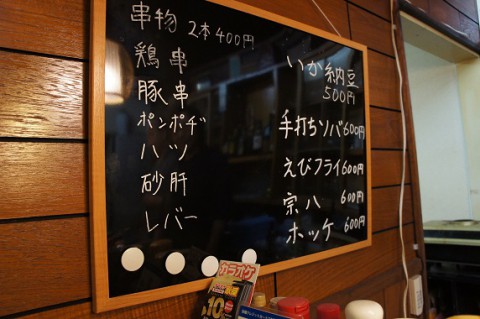 串物 2本400円
鶏串
豚串
ポンポヂ
ハツ
砂肝
レバー
いか納豆
500円
手打ちソバ600円
えびフライ600円
宗八 600円
ホッケ 600円
カラオケ